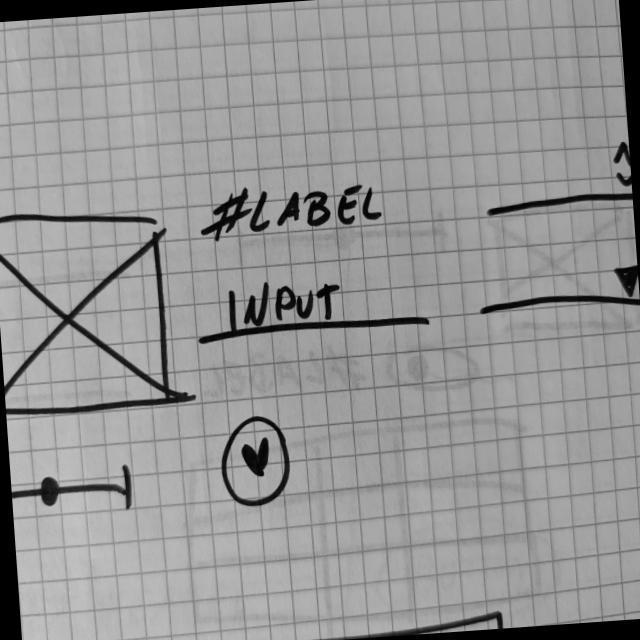 #LABEL
INPUT